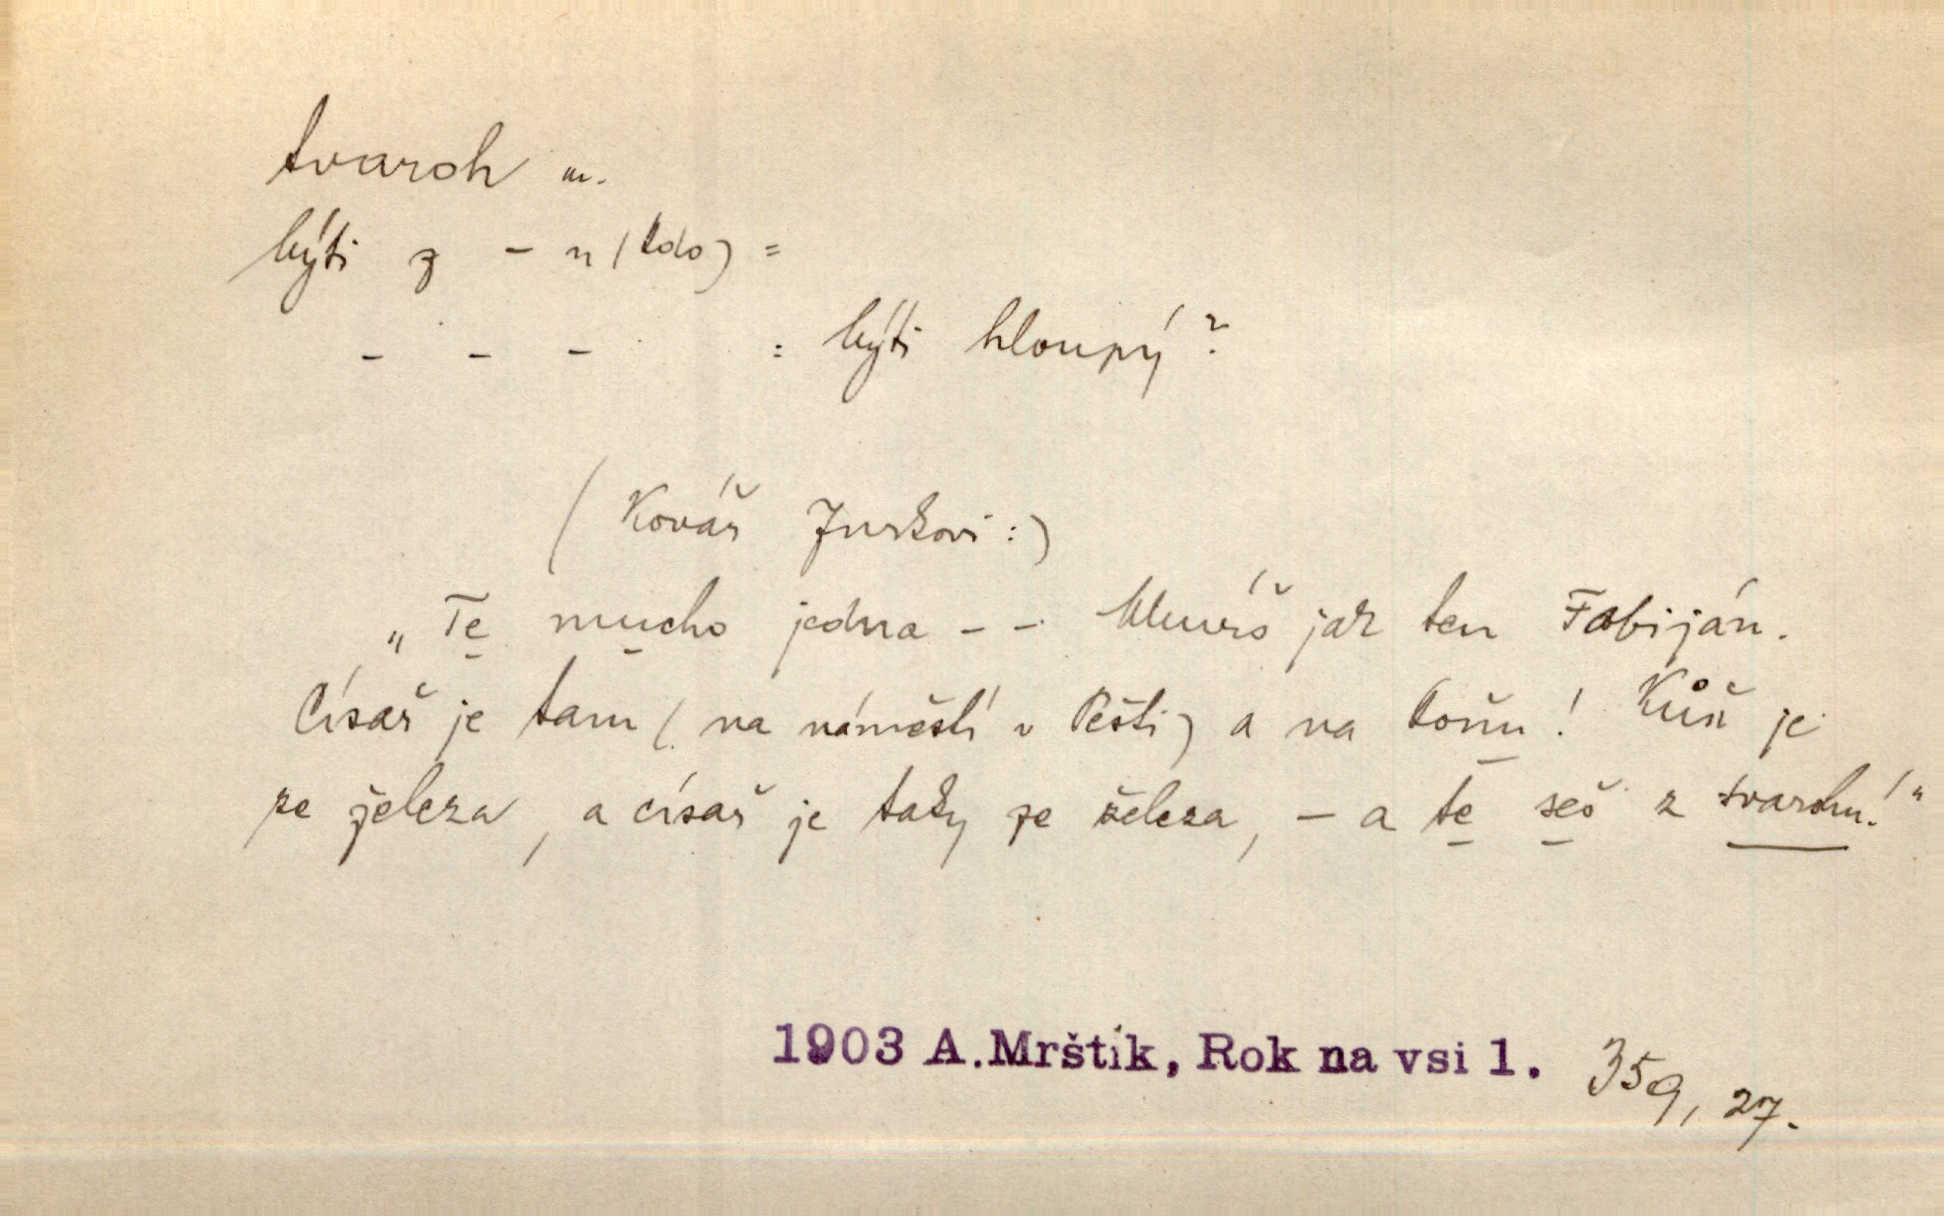 tvaroh m.
býti z – u (kdo) =
– – – : býti hloupý?
(Kovář Jurkovi:)
„Te mucho jedna – – Mluvíš jak ten Fabiján.
Císař je tam (na náměstí v Pešti) a na koňu! Kůň je
ze železa, a císař je taky ze železa, – a te seš z tvarohu!"
1903 A. Mrštík, Rok na vsi 1. 359, 27.